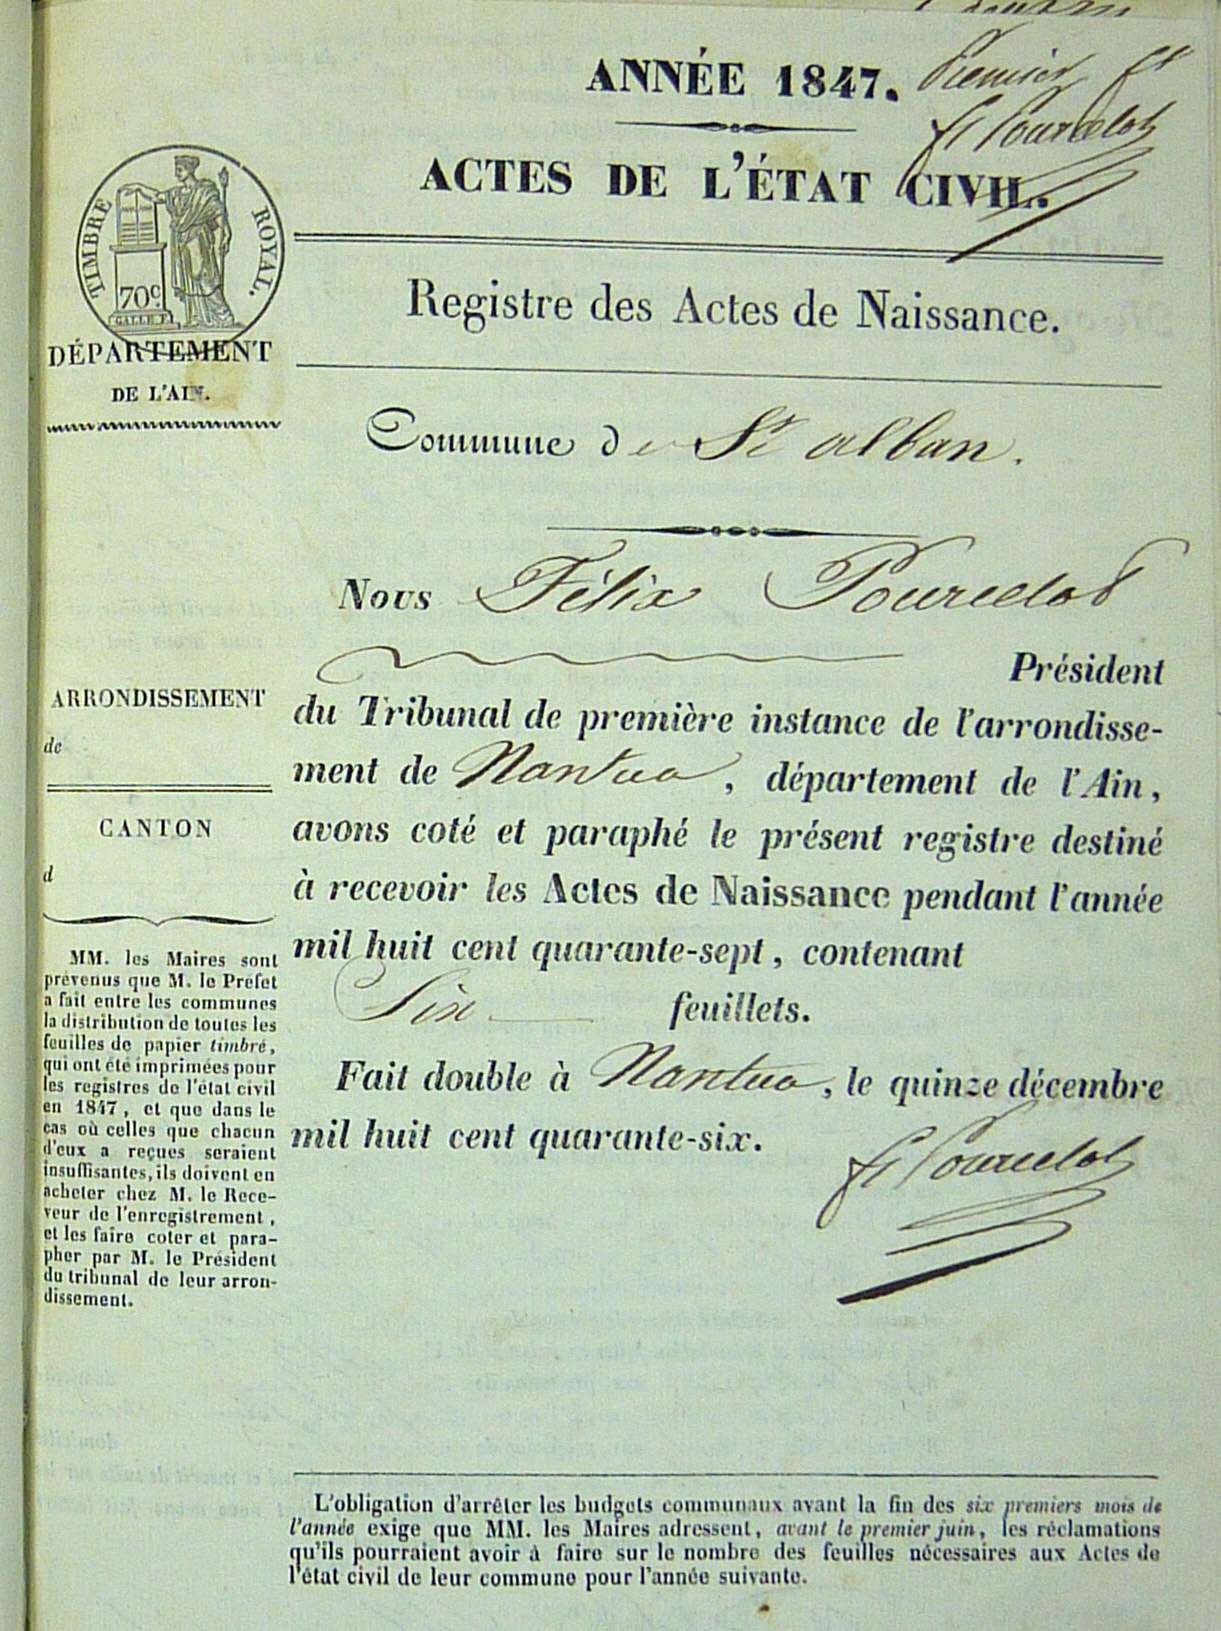 ANNÉE 1847.
Premier ft
ft Pourcelot
ACTES DE L'ÉTAT CIVIL.
TIMBRE ROYAL.
70c
GALLE F.
DÉPARTEMENT
DE L'AIN.
Registre des Actes de Naissance.
Commune de St alban.
Nous Félix Pourcelot
Président
du Tribunal de première instance de l'arrondisse-
ment de Nantua, département de l'Ain,
avons coté et paraphé le présent registre destiné
à recevoir les Actes de Naissance pendant l'année
mil huit cent quarante-sept, contenant
Six feuillets.
Fait double à Nantua, le quinze décembre
mil huit cent quarante-six.
ft Pourcelot
ARRONDISSEMENT
de
CANTON
d
MM. les Maires sont
prévenus que M. le Préfet
a fait entre les communes
la distribution de toutes les
feuilles de papier timbré,
qui ont été imprimées pour
les registres de l'état civil
en 1847, et que dans le
cas où celles que chacun
d'eux a reçues seraient
insuffisantes, ils doivent en
acheter chez M. le Rece-
veur de l'enregistrement,
et les faire coter et para-
pher par M. le Président
du tribunal de leur arron-
dissement.
L'obligation d'arrêter les budgets communaux avant la fin des six premiers mois de
l'année exige que MM. les Maires adressent, avant le premier juin, les réclamations
qu'ils pourraient avoir à faire sur le nombre des feuilles nécessaires aux Actes de
l'état civil de leur commune pour l'année suivante.